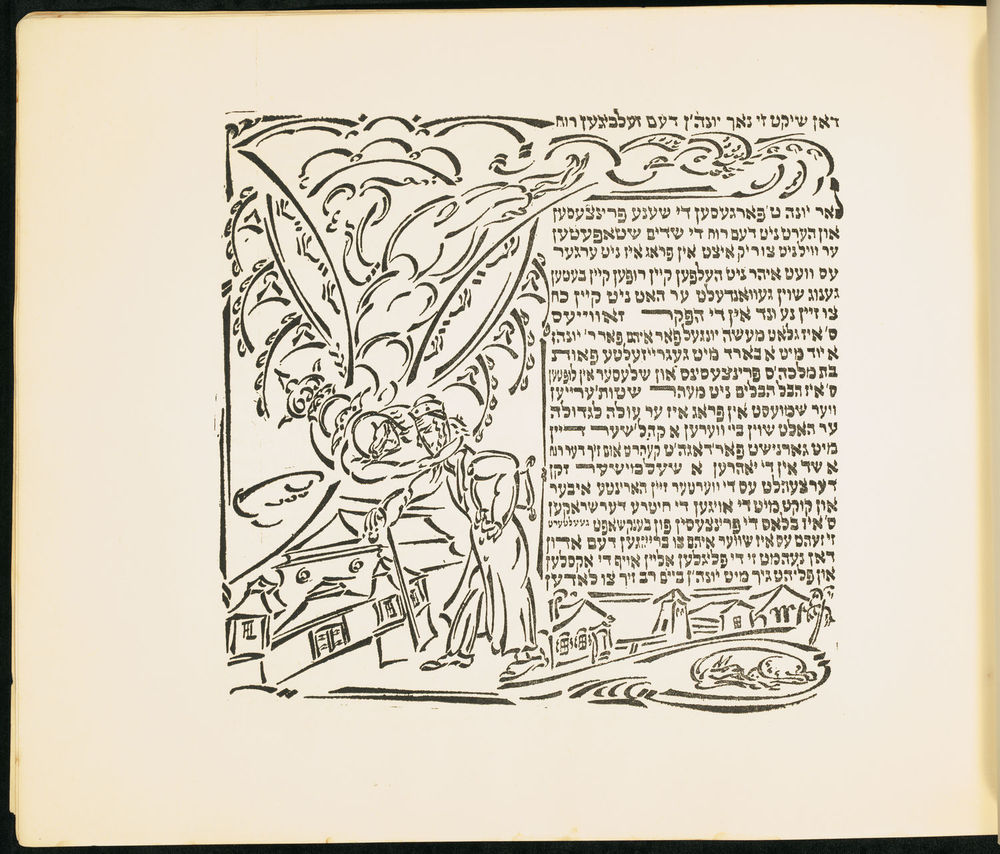 דאן שיקט זי נאך יונה'ן דעם זעלבצען רוח
נאר יונה ט'פארגעסען די שענע פרינצעסען
און הערט ניט דעם רוח די שדים שטאפעטען
ער וויל ניט צוריק איצט אין פראג איז ניט ערגער
עס וועט איהר ניט העלפען קיין רופען קיין בעטען
גענוג שוין געוואנדעלט ער האט ניט קיין כח
צו זיין נע ונד אין די הפקר זאווייעס
ס'איז גלאט מעשה יונגעל פאר איהם פאר ר' יונהן
א יוד מיט א בארד מיט געגרייזעלטע פאות
בת מלכה'ס פרינצעסינס און שלעסער אין
ס'איז הבל הבלים ניט מעהר שטותערייען
ווער שמועסט אין פראג איז ער עולה לגדולה
ער האלט שוין ביי ווערען א קהל'שער דיין
מיט גארנישט פאר'דאגה'ט קעהרט אום זיך דער רוח
א שד אין די יאהרען א שעלמוישער זקן
דערצעהלט עס די ווערטער זיין הארינטע איבער
און קוקט מיט די אויגען די חיטרע דערשראקען
ס'איז בלאס די פרינצעסין פון בענקשאפט געעלטערט
זי זעהט עס איז שווער איהם צו ברענגען דעם
דאן נעהמט זי די פליגלען אליין אויף די אקסלען
און פליהט גיך מיט יונה'ן ביים רב זיך צו לאדען